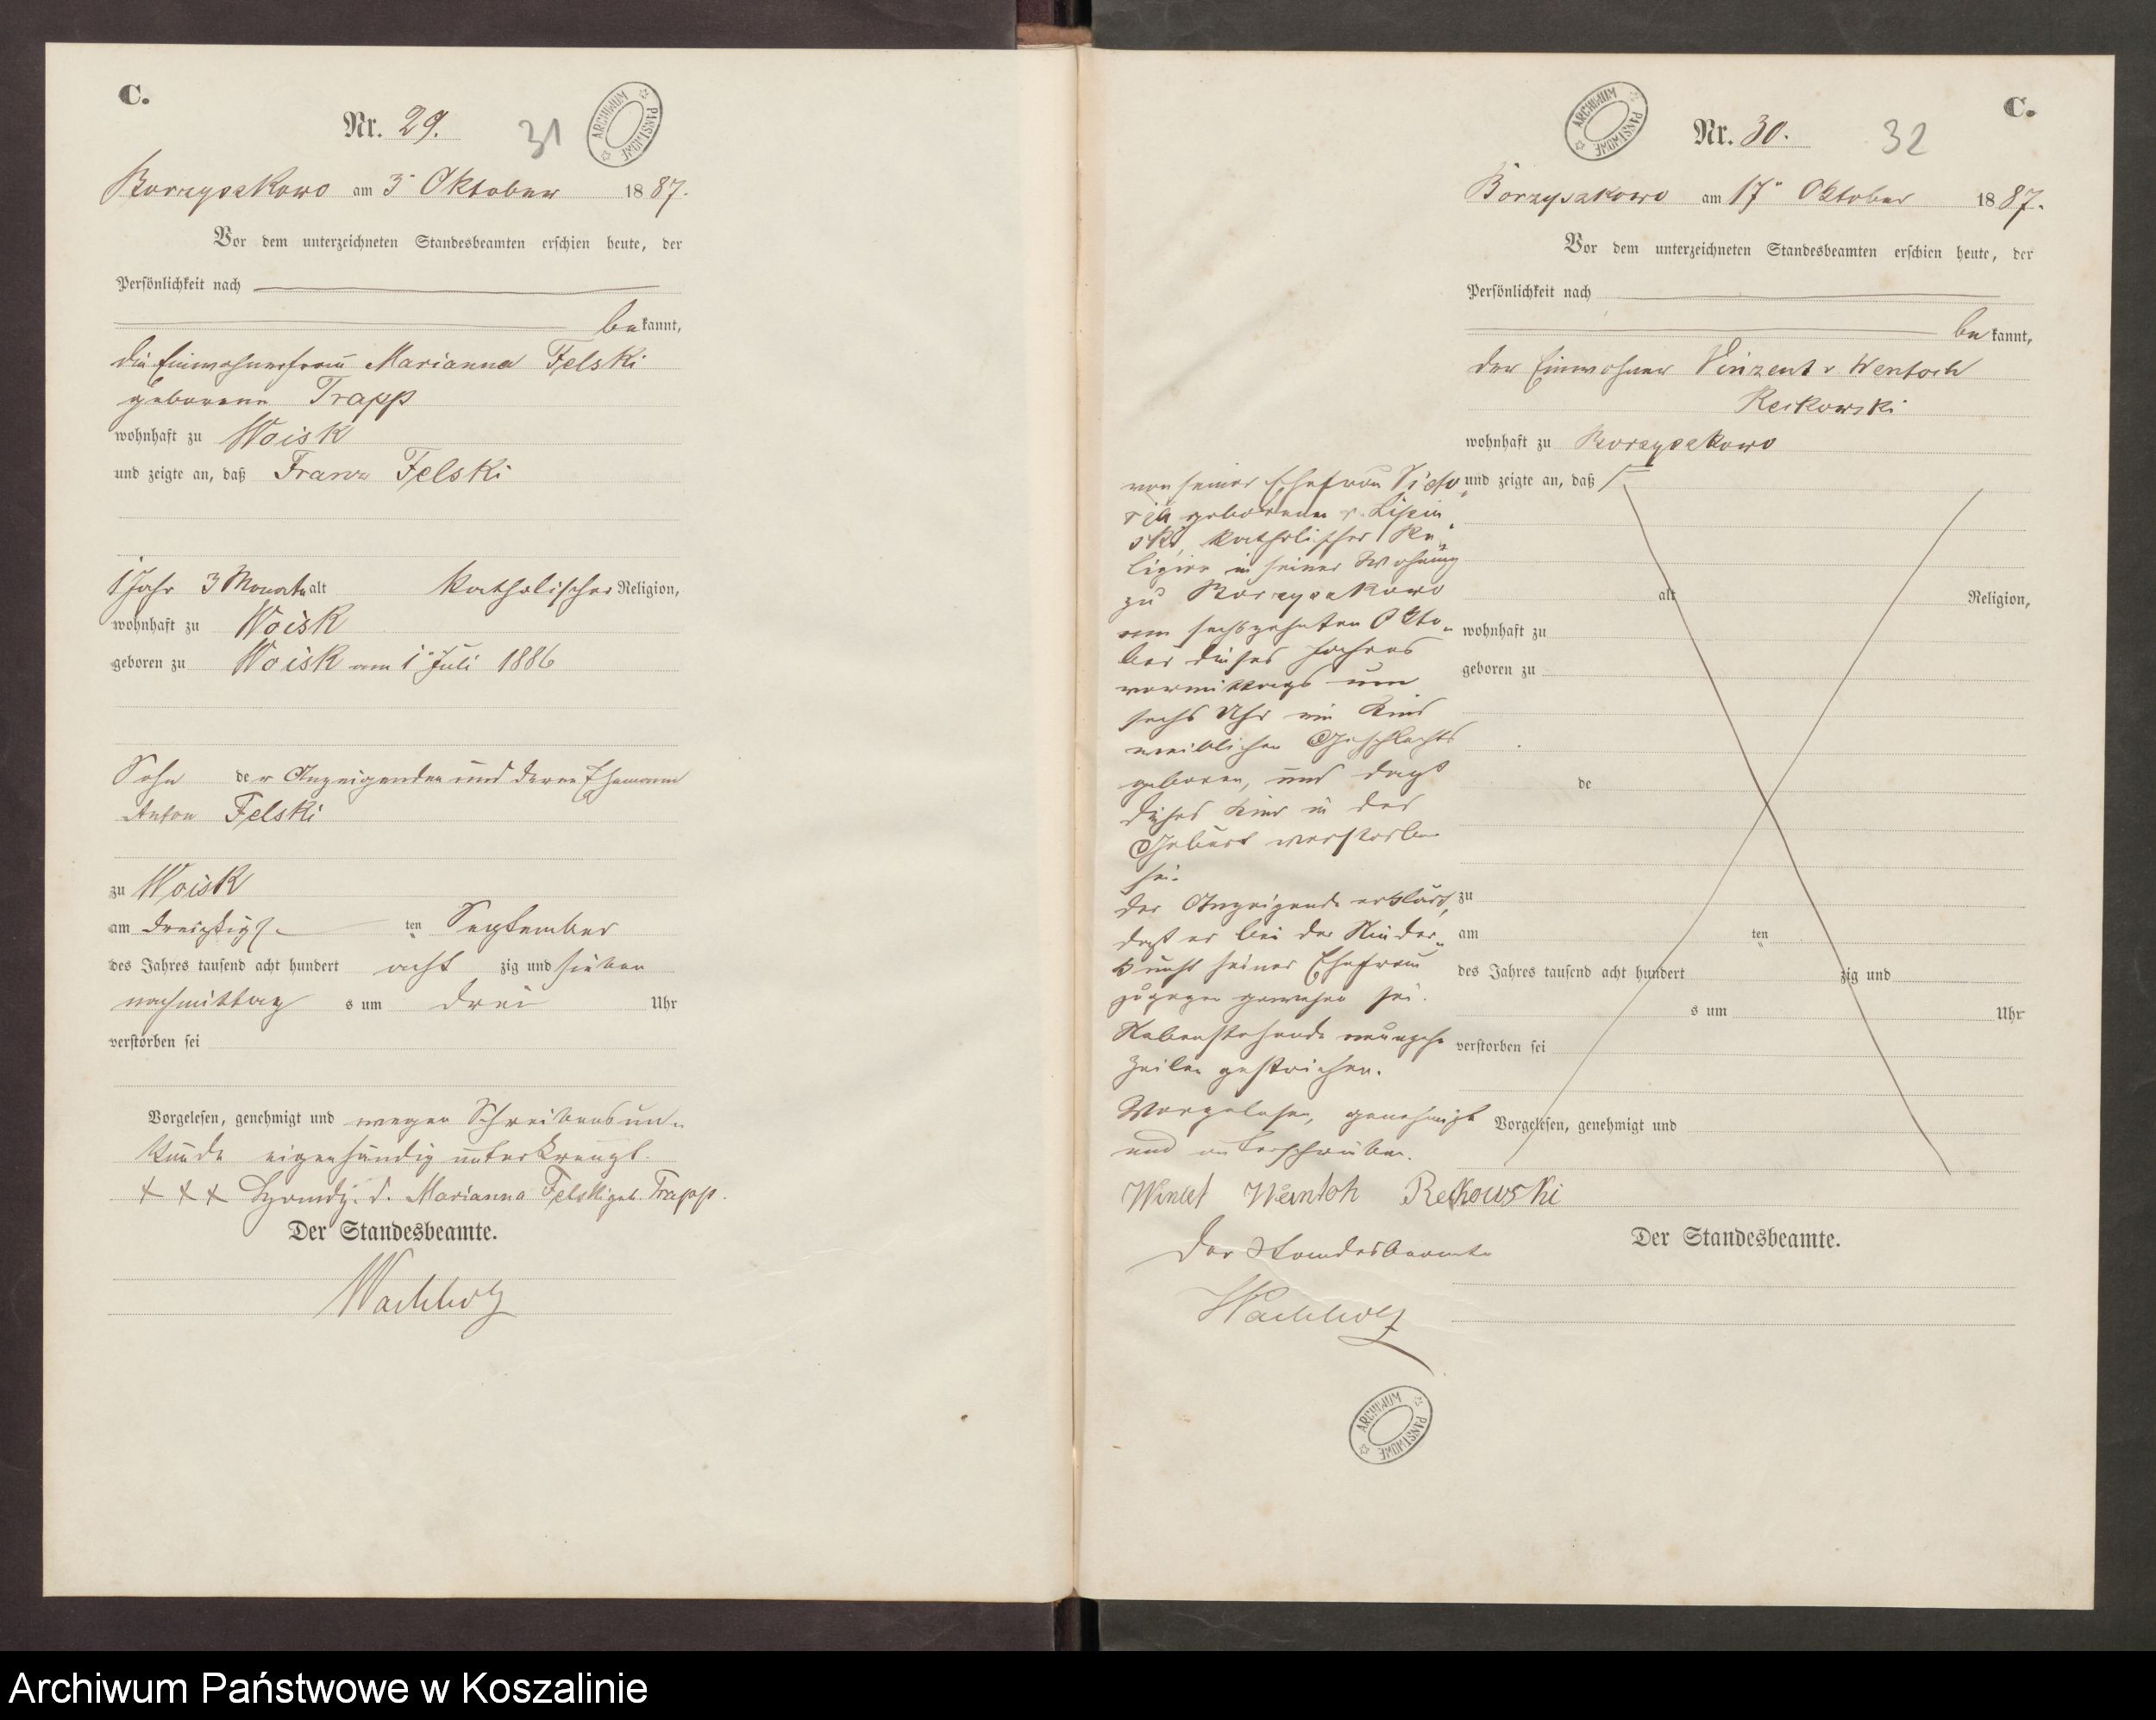 C.
Nr. 29.
31
ARCHIWUM PAŃSTWOWE
Borzyszkowo am 3ⁿ Oktober 1887.
Vor dem unterzeichneten Standesbeamten erschien heute, der
Persönlichkeit nach
bekannt,
die Einwohnerfrau Marianna Felski
geborene Trapp
wohnhaft zu Woisk
und zeigte an, daß Franz Felski
1 Jahr 3 Monate alt katholischer Religion,
wohnhaft zu Woisk
geboren zu Woisk am 1ⁿ Juli 1886
Sohn der Anzeigenden und deren Ehemann
Anton Felski
zu Woisk
am dreißigs ten September
des Jahres tausend acht hundert acht zig und sieben
nachmittag s um drei Uhr
verstorben sei
Vorgelesen, genehmigt und wegen Schreibensun-
kunde eigenhändig unterkreuzt.
+ + + Hzeichen d. Marianna Felski geb. Trapp.
Der Standesbeamte.
Wachholz
C.
Nr. 30.
32
ARCHIWUM PAŃSTWOWE
Borzyszkowo am 17ⁿ Oktober 1887.
Vor dem unterzeichneten Standesbeamten erschien heute, der
Persönlichkeit nach
bekannt,
der Einwohner Vinzent v. Wentoch
Reckowski
wohnhaft zu Borzyszkowo
und zeigte an, daß
alt Religion,
wohnhaft zu
geboren zu
de
zu
am ten
des Jahres tausend acht hundert zig und
s um Uhr
verstorben sei
Vorgelesen, genehmigt und
von seiner Ehefrau Victo-
ria geborenen v. Lipin-
ski, katholischer Re-
ligion in seiner Wohnung
zu Borzyszkowo
am sechszehnten Okto-
ber dieses Jahres
vormittags um
sechs Uhr ein Kind
weiblichen Geschlechts
geboren, und daß
dieses Kind in der
Geburt verstorben
sei.
Der Anzeigende erklärt,
daß er bei der Nieder-
kunft seiner Ehefrau
zugegen gewesen sei.
Nebenstehende
Zeilen gestrichen.
Vorgelesen, genehmigt
und unterschrieben.
Wincet Wentoh Reckowski
Der Standesbeamte
Wachholz
Der Standesbeamte.
ARCHIWUM PAŃSTWOWE
Archiwum Państwowe w Koszalinie